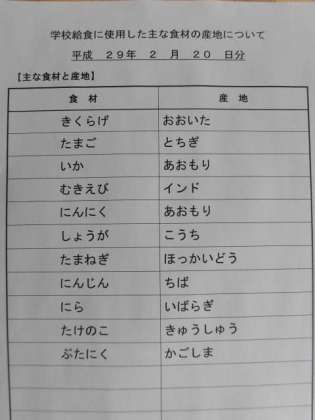 学校給食に使用した主な食材の産地について
平成 29年 2 月 20 日分
【主な食材と産地】
食 材 産 地
きくらげ おおいた
たまご とちぎ
いか あおもり
むきえび インド
にんにく あおもり
しょうが こうち
たまねぎ ほっかいどう
にんじん ちば
にら いばらぎ
たけのこ きゅうしゅう
ぶたにく かごしま